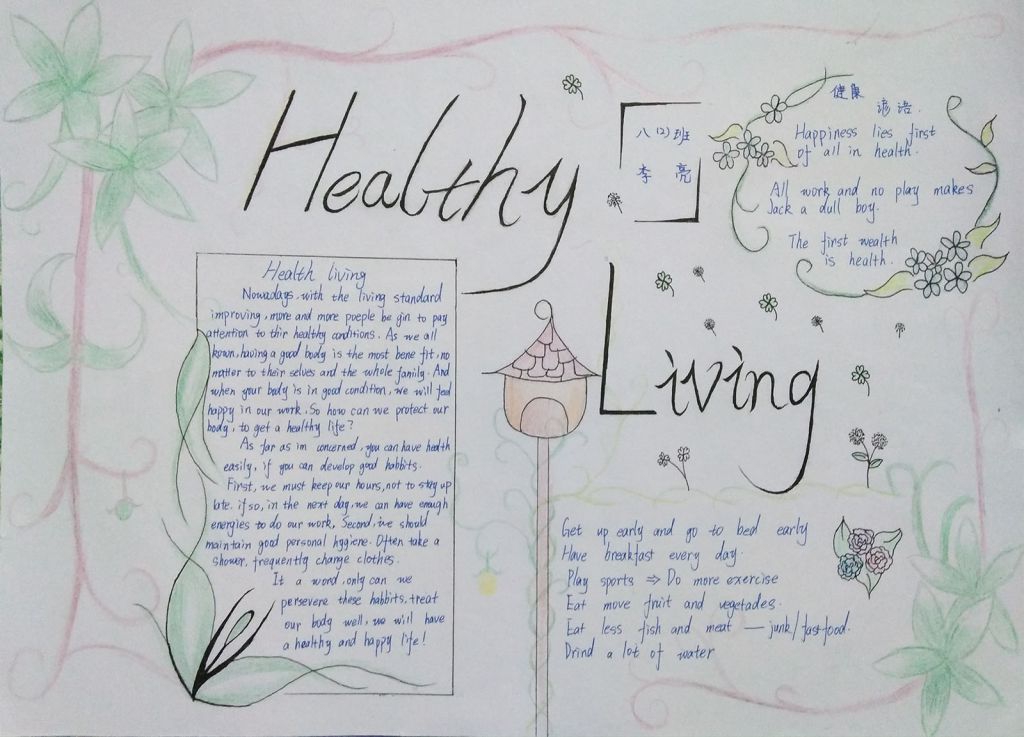 Healthy
Living
八(2)班
李亮
健康
谚语.
Happiness lies first
of all in health.
All work and no play makes
Jack a dull boy.
The first wealth
is health.
Health living
Nowadays, with the living standard
improving, more and more poeple be gin to pay
attention to thir healthy conditions. As we all
kown, having a good body is the most bene fit, no
matter to their selves and the whole family. And
when your body is in good condition, we will feel
happy in our work. So how can we protect our
body, to get a healthy life?
As far as im concerned, you can have health
easily, if you can develop good habbits.
First, we must keep our hours, not to stay up
late. if so, in the next day, we can have enough
energies to do our work, Second, we should
maintain good personal hygiene. Often take a
shower, frequently change clothes.
It a word, only can we
persevere these habbits, treat
our body well, we will have
a healthy and happy life!
Get up early and go to bed early
Have breakfast every day.
Play sports ⇒ Do more exercise
Eat move fruit and vegetades.
Eat less fish and meat — junk/fastfood.
Drind a lot of water